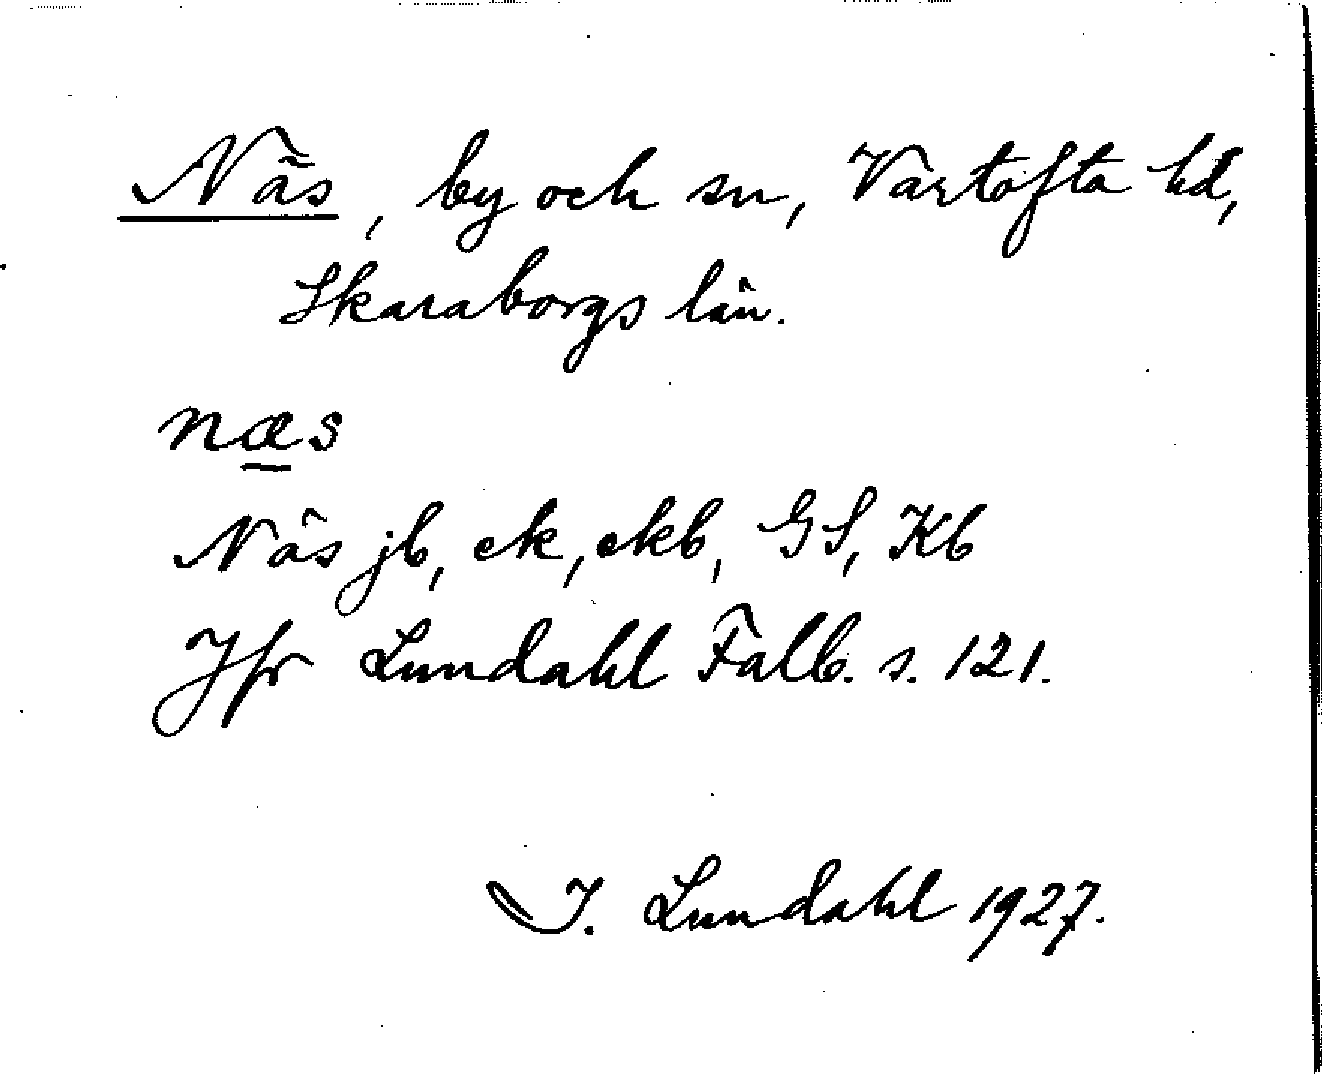 Näs, by och sn, Vartofta hd,
Skaraborgs län.
næs
Näs jb, ek, ekb, GS, Kb
Jfr Lundahl Falb. s. 121.
I. Lundahl 1927.